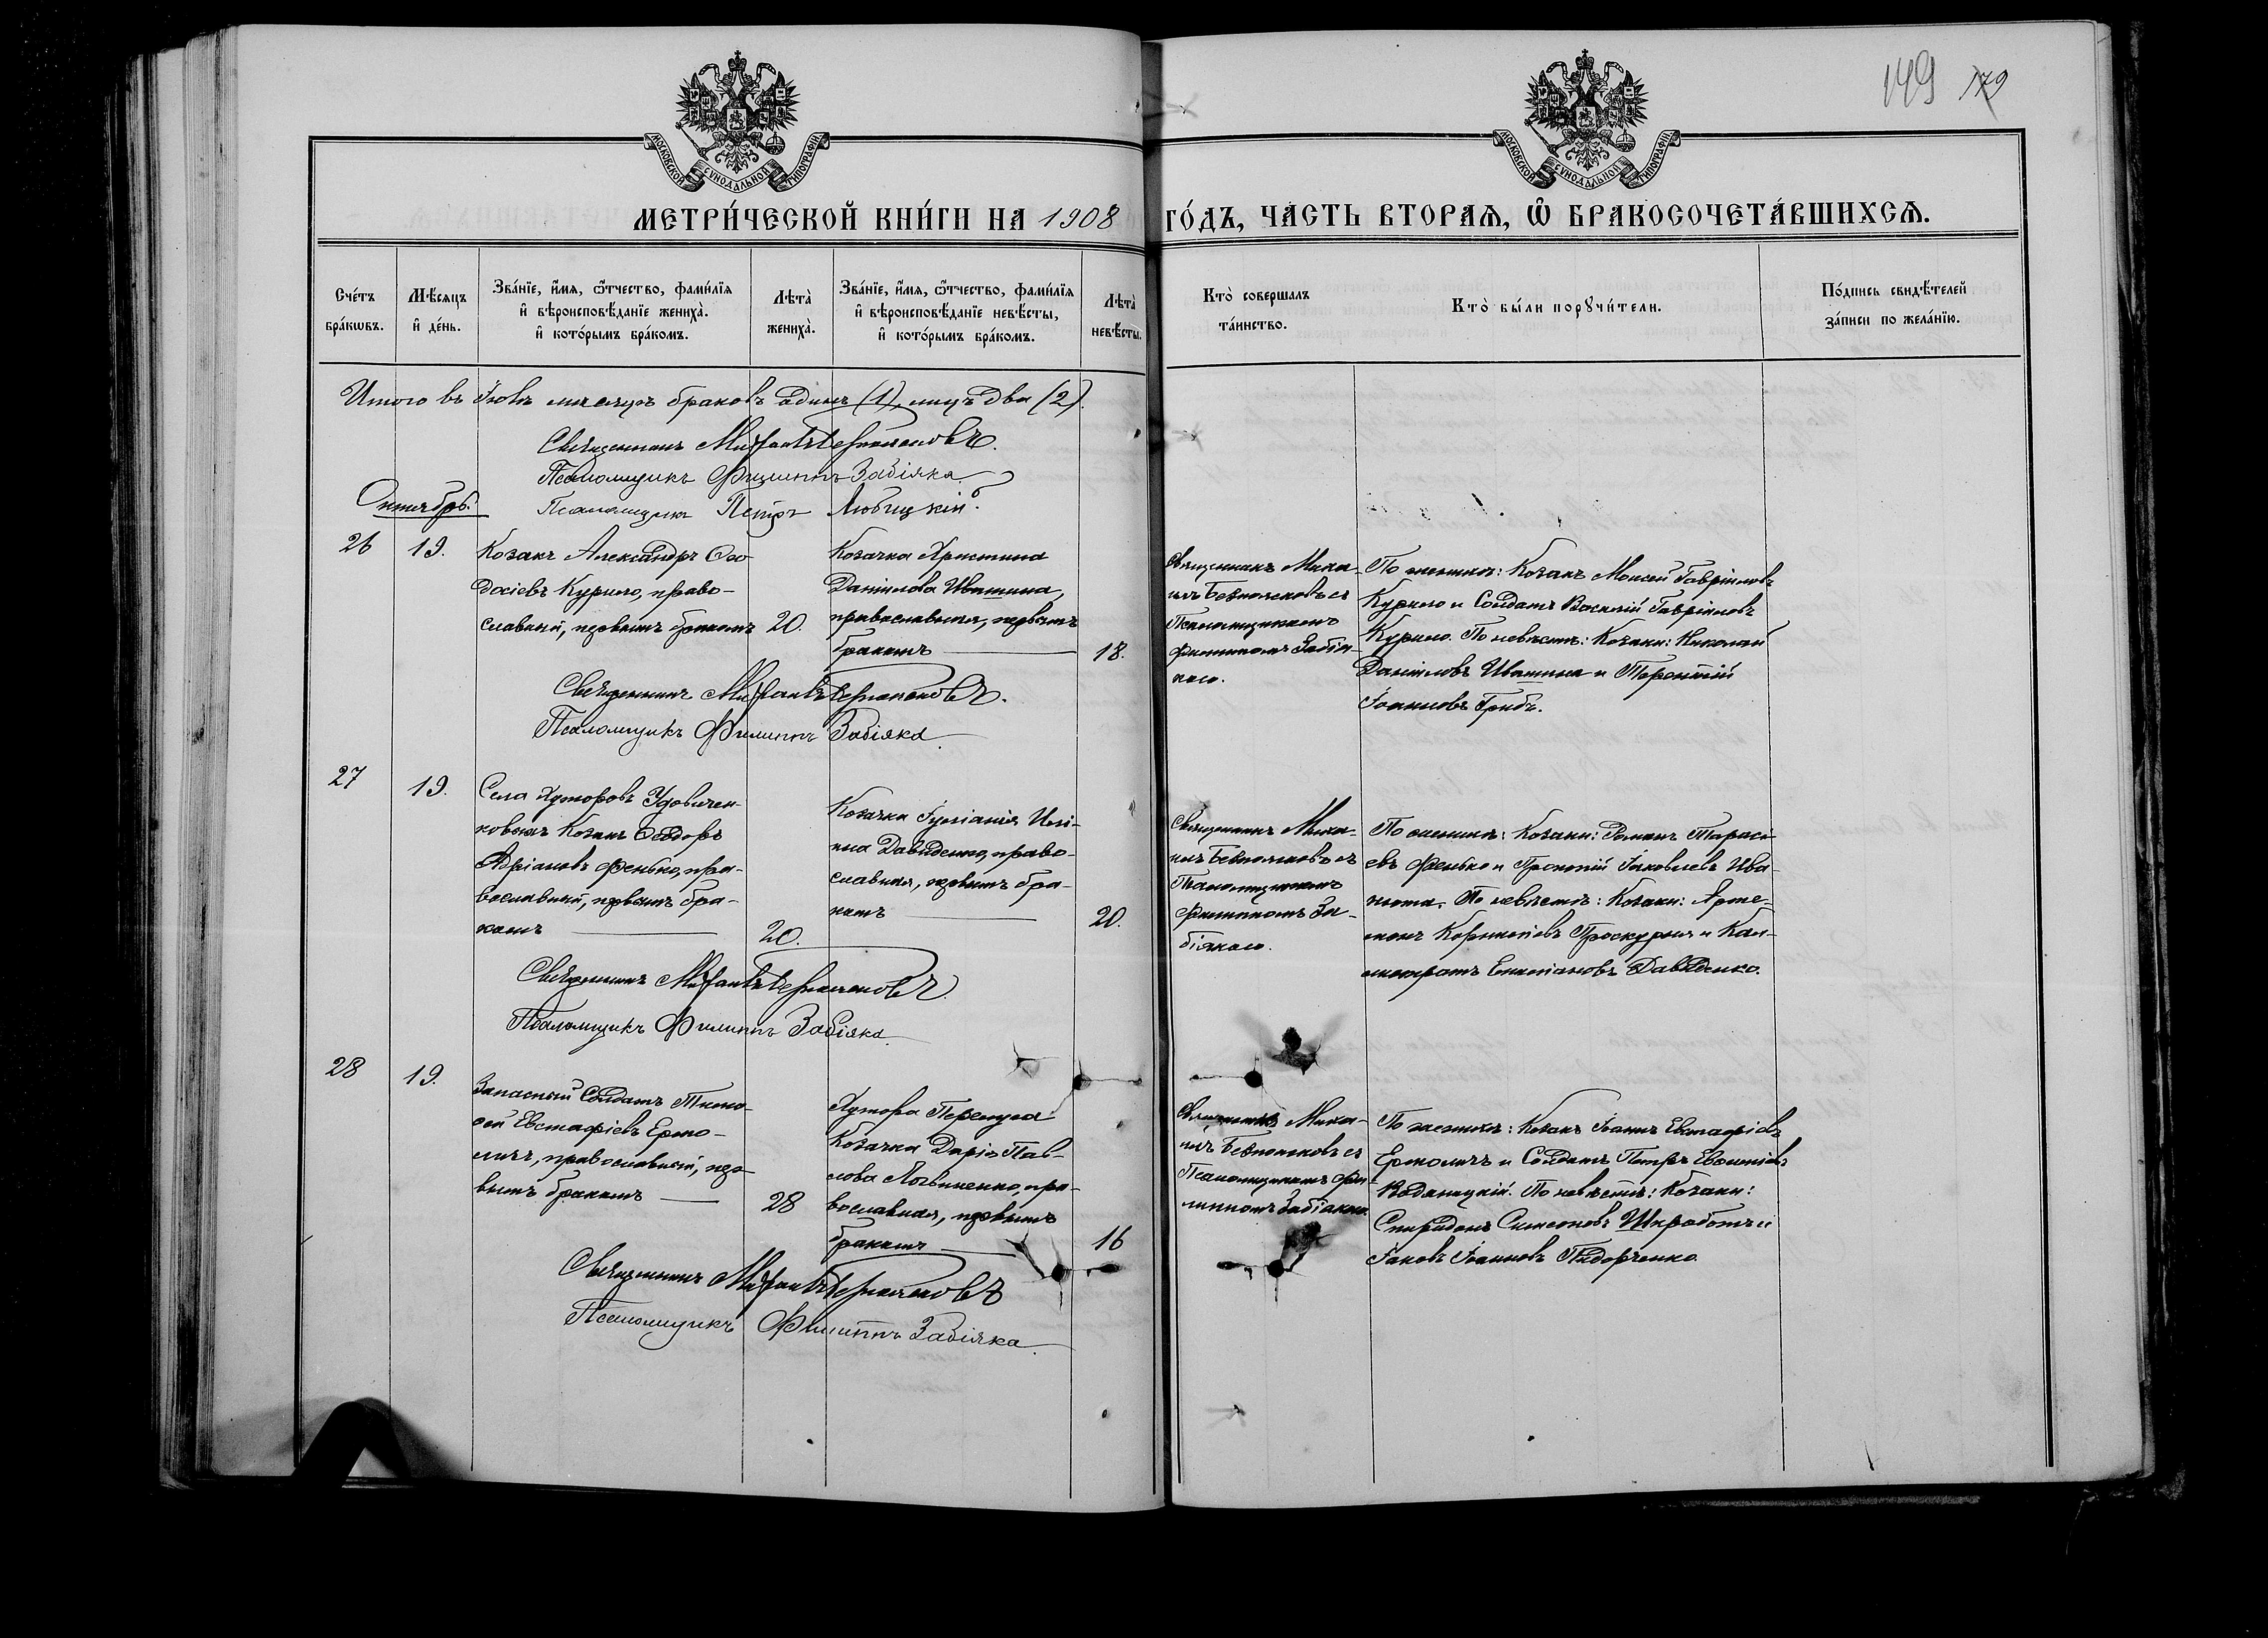 149 179
МОСКОВСКОЙ СѴНОДАЛЬНОЙ ТИПОГРАФІИ
МОСКОВСКОЙ СѴНОДАЛЬНОЙ ТИПОГРАФІИ
МЕТРИ́ЧЕСКОЙ КНИ́ГИ НА 1908 ГО́ДЪ, ЧА́СТЬ ВТОРАѦ, Ѽ БРАКОСОЧЕТА́ВШИХСѦ.
Сче́тъ бра́кѡвъ.
Мѣ́сѧцъ и҆ де́нь.
Зва́нїе, и҆́мѧ, ѻ҆́тчество, фами́лїѧ
и҆ вѣроисповѣ́данїе женихà.
и҆ кото́рымъ бра́комъ.
Лѣтà женихà.
Зва́нїе, и҆́мѧ, ѻ҆́тчество, фами́лїѧ
и҆ вѣроисповѣ́данїе невѣ́сты,
и҆ кото́рымъ бра́комъ.
Лѣтà невѣ́сты.
Кто̀ совершалъ
та́инство.
Кто̀ бы́ли порꙋчи́тели.
По́дпись свидѣ́телей
за́писи по жела́нїю.
Итого въ Іюлѣ мѣсяцѣ браковъ одинъ (1), лицъ два (2).
Священникъ
Псаломщикъ Филиппъ Забіяка
Псаломщикъ Петръ Любицкій.
Октябрь.
26
19.
Козакъ Александръ Ѳео-
досіевъ Курило, право-
славный, первымъ бракомъ
20.
Козачка Христина
Даніилова Ивашина,
православная, первымъ
бракомъ
18.
Священникъ Миха-
илъ съ
Псаломщикомъ
Филиппомъ Забія-
кою.
По женихѣ: Козакъ Моисей Гавріиловъ
Курило и Солдатъ Василій Гавріиловъ
Курило. По невѣстѣ: Козаки: Николай
Даніиловъ Ивашина и Терентій
Іоанновъ Грибъ.
Священникъ
Псаломщикъ Филиппъ Забіяка
27
19.
Села Хуторовъ Удовичен-
ковыхъ Козакъ Ѳеодоръ
Адріановъ Фенько, пра-
вославный, первымъ бра-
комъ
20.
Козачка Іуліанія
Давиденко, право-
славная, первымъ бра-
комъ
20.
Священникъ Миха-
илъ съ
Псаломщикомъ
Филиппомъ За-
біякою.
По женихѣ: Козаки: Романъ Тарасі-
евъ Фенько и Прокопій Іаковлевъ Ива-
нюта. По невѣстѣ: Козаки: Арте-
монъ Корниліевъ Проскурня и Кал-
листратъ Давиденко.
Священникъ
Псаломщикъ Филиппъ Забіяка
28
19.
Запасный Солдатъ Тимо-
фей Евстафіевъ Ермо-
личъ, православный, пер-
вымъ бракомъ
28
Хутора Перелуга
Козачка Дарія Пав-
лова Логвиненко, пра-
вославная, первымъ
бракомъ
16
Священникъ Миха-
илъ съ
Псаломщикомъ Фи-
липпомъ Забіякою.
По женихѣ: Козакъ Іоаннъ Евстафіевъ
Ермоличъ и Солдатъ Петръ
Водяницкій. По невѣстѣ: Козаки:
Спиридонъ Симеоновъ Шкработъ и
Іаковъ Іоанновъ
Священникъ
Псаломщикъ Филиппъ Забіяка